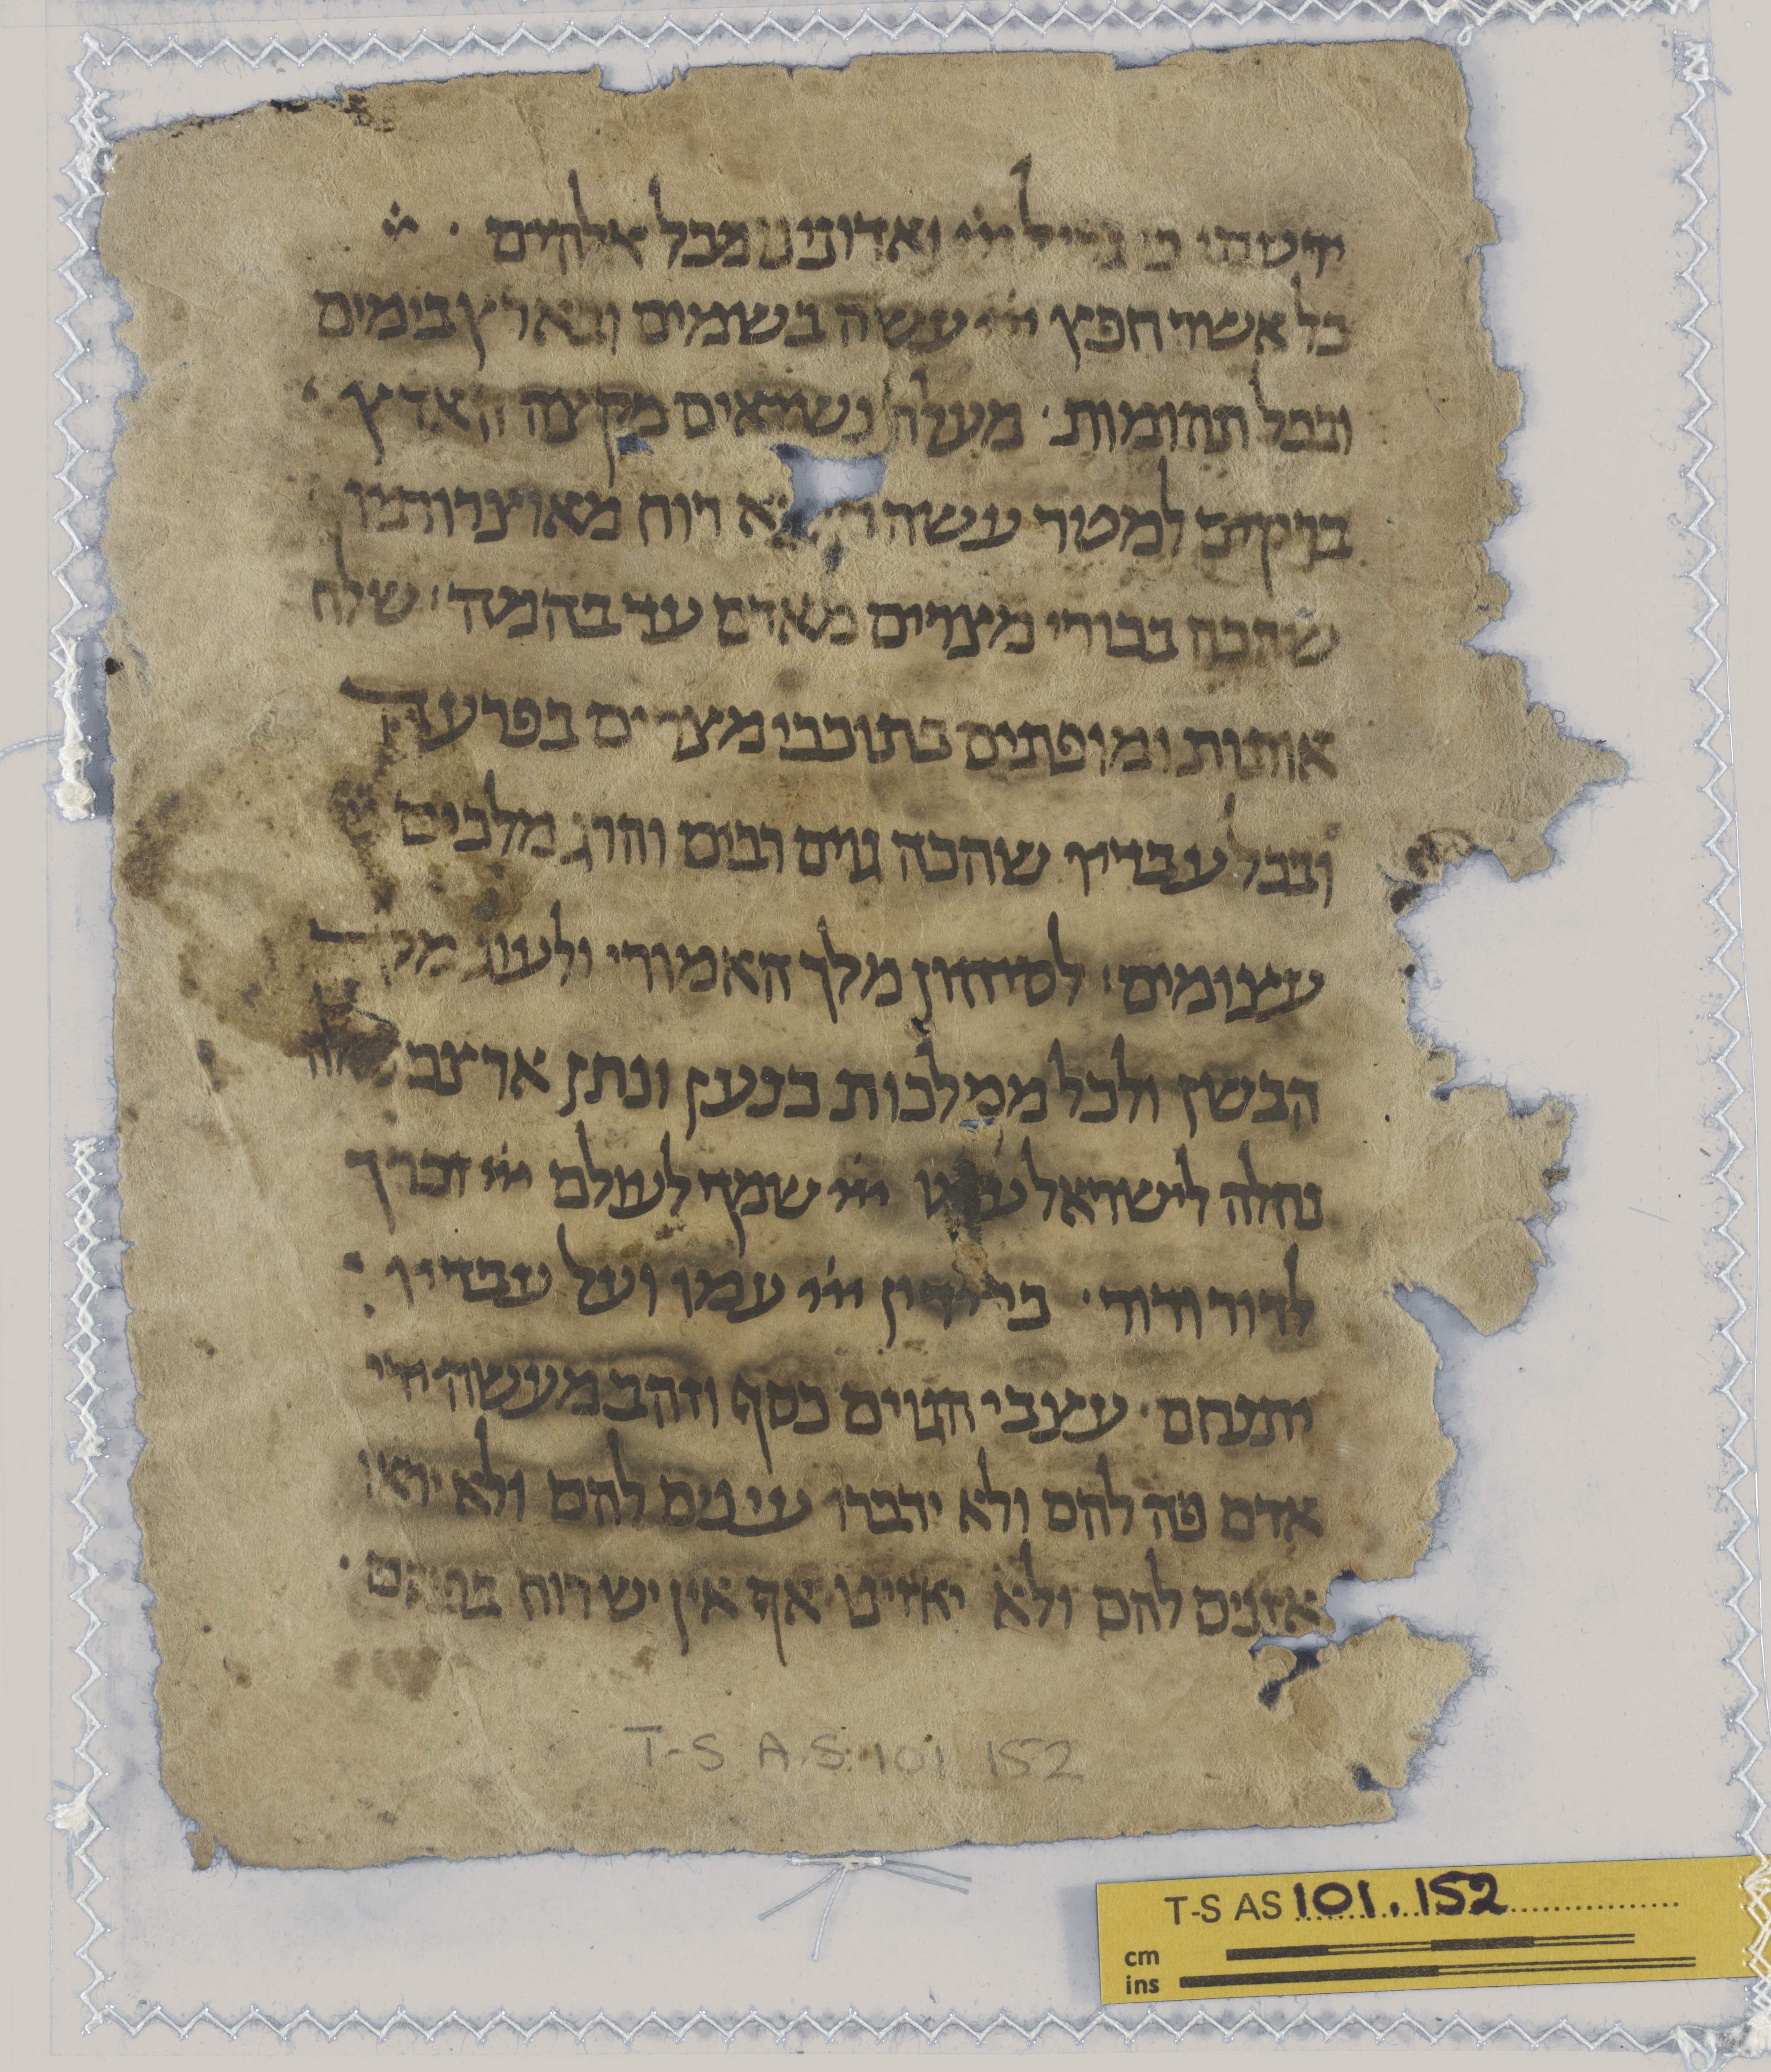 ידעתי כי גדול ייי ואדונינו מכל אלהים ·
כל אשר חפץ ייי עשה בשמים ובארץ בימים
וככל תהומות · מעלה נשיאים מקצה הארץ
ברקים למטר עשה רוח מאוצרותיו
שהכה בכורי מצרים מאדם עד בהמה · שלח
אותות ומופתים בתוככי מצרים בפרעה
ובכל עבדיו שהכה גוים רבים והרג מלכים
עצומים · לסיחון מלך האמורי ולעוג מלך
הבשן ולכל ממלכות כנען ונתן ארצם
נחלה לישראל עמו ייי שמך לעולם ייי זכרך
לדור ודור · כי ידין ייי עמו ועל עבדיו
יתנחם · עצבי הגוים כסף וזהב מעשה ידי
אדם פה להם ולא ידברו עינים להם ולא יראו
אזנים להם ולא יאזינו אף אין יש רוח בפיהם ·
T-S A.S. 101 152
T-S AS 101.152
cm
ins